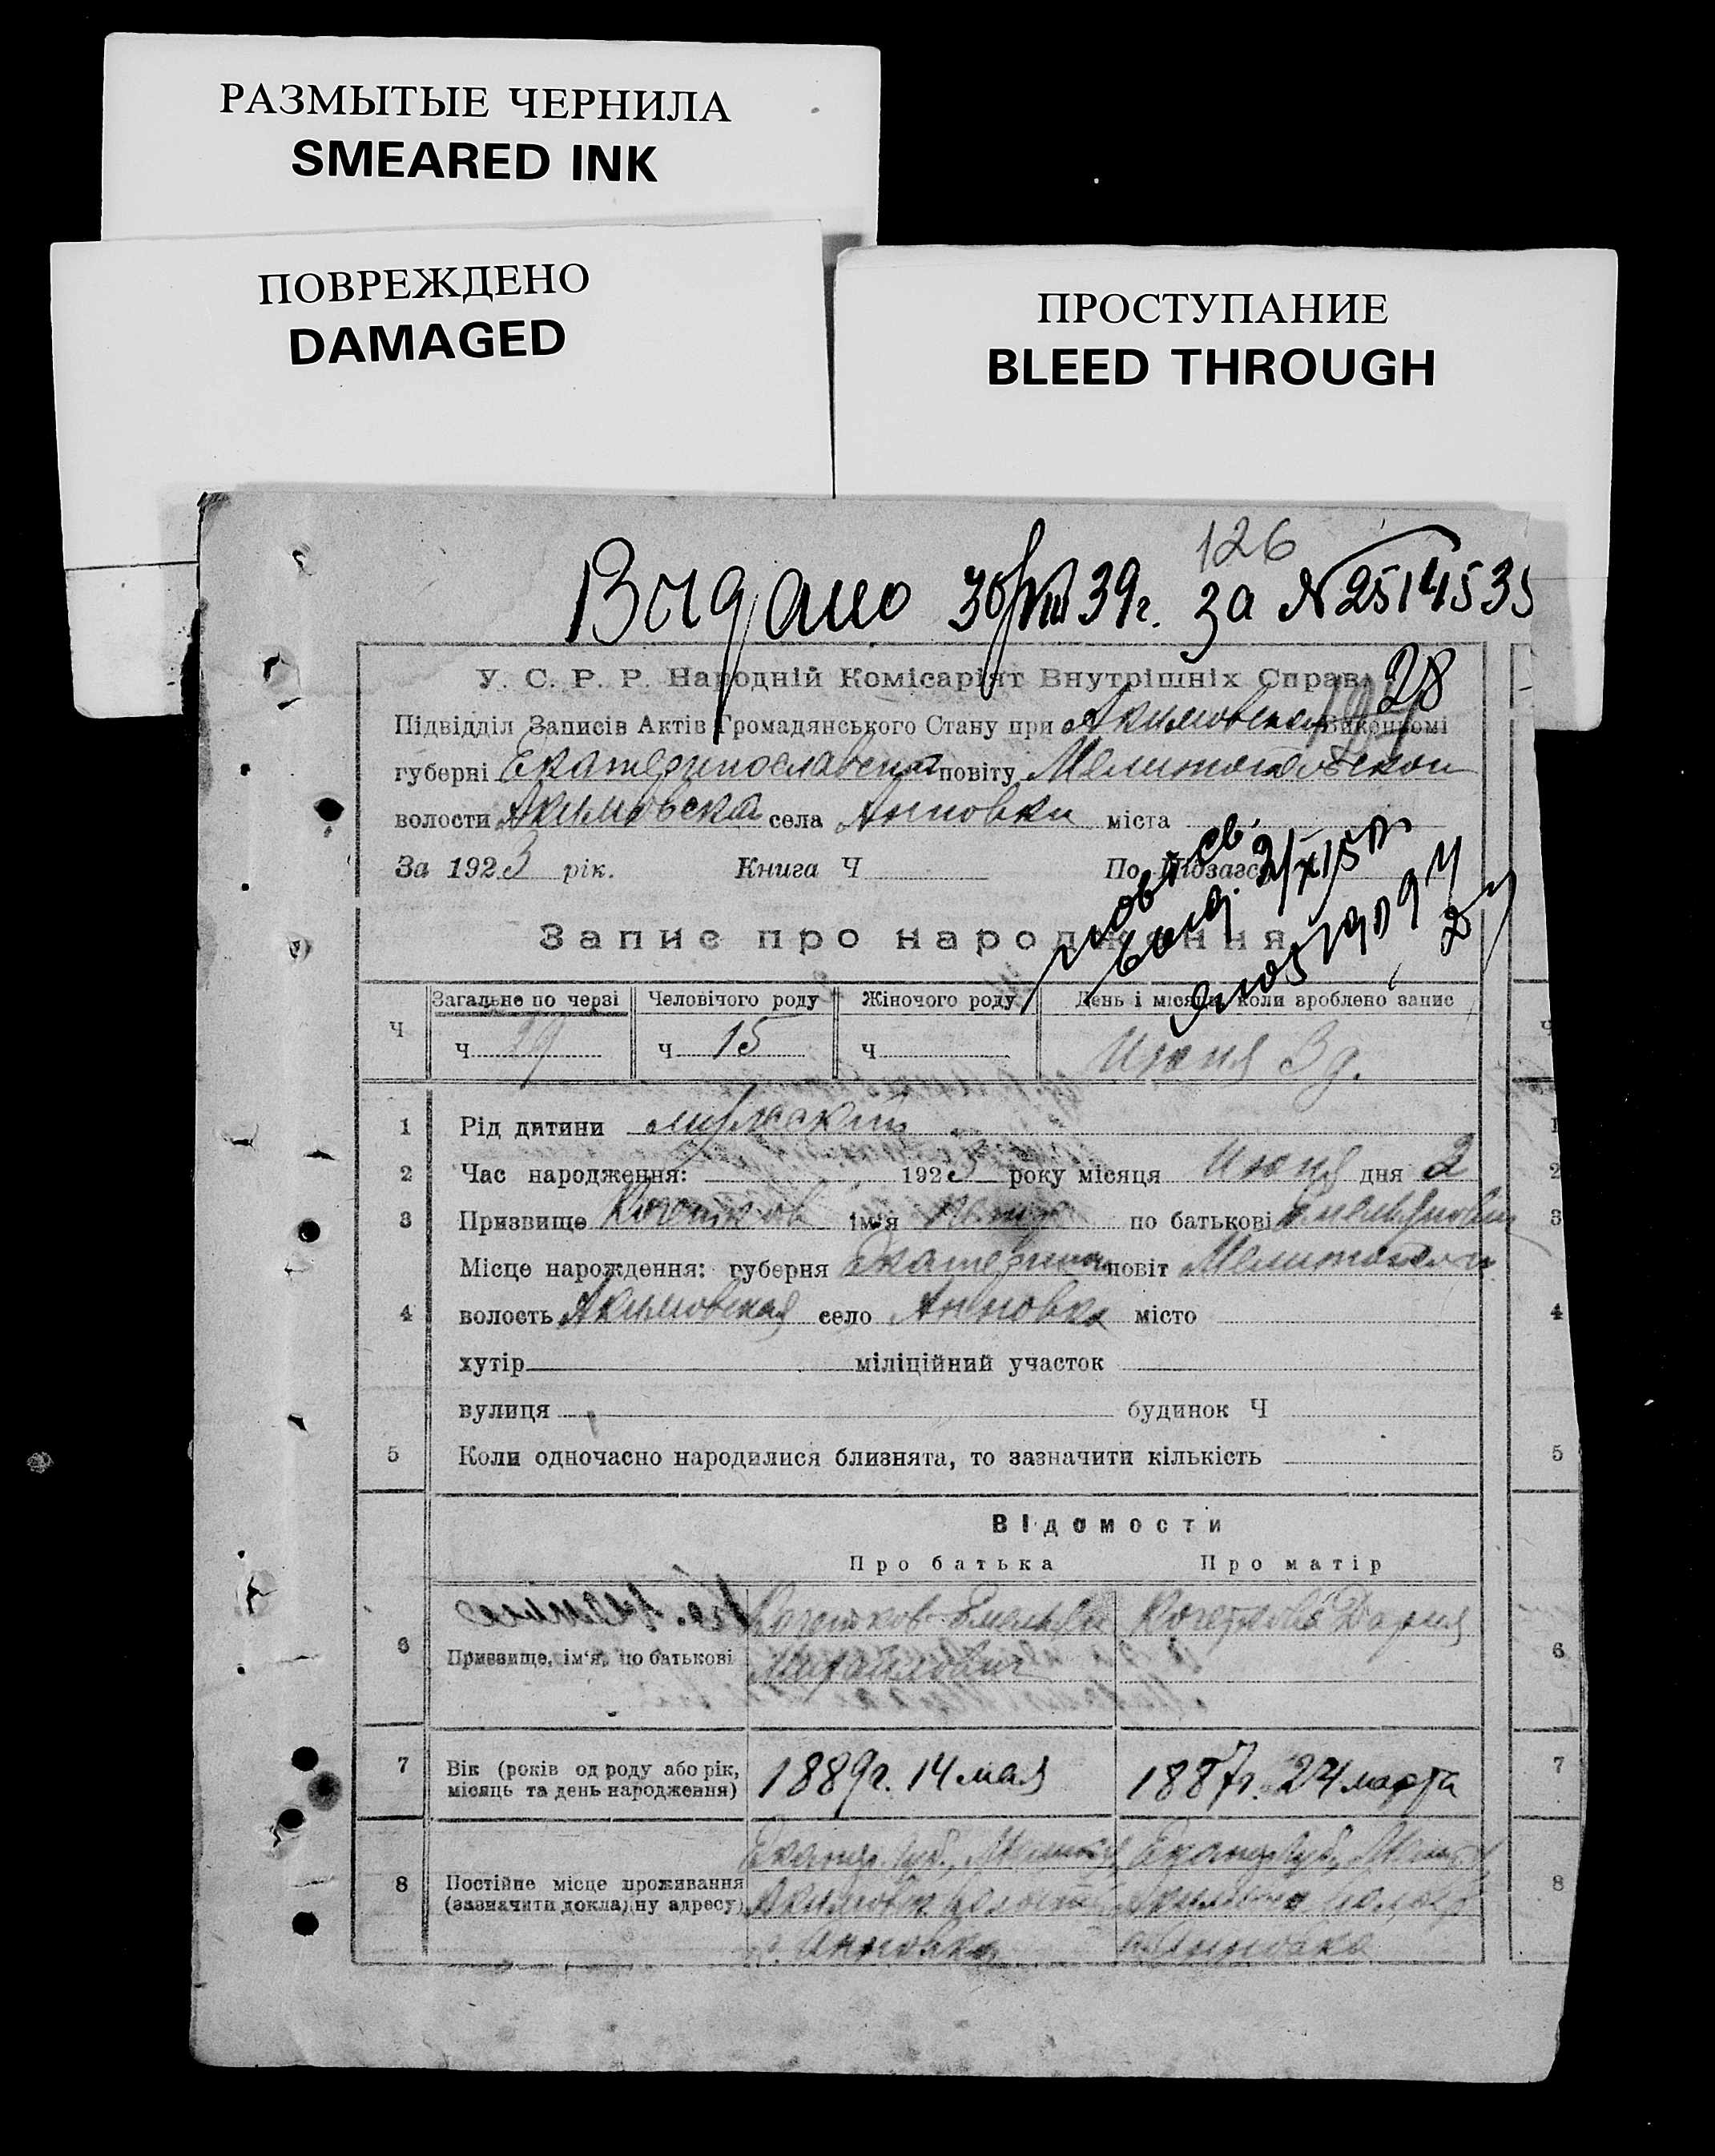 РАЗМЫТЫЕ ЧЕРНИЛА
SMEARED INK
ПОВРЕЖДЕНО
DAMAGED
ПРОСТУПАНИЕ
BLEED THROUGH
126
Видано 30/VIII 39г. за №2514535
28
У. С. Р. Р. Народній Комісаріят Внутрішніх Справ
Підвідділ Записів Актів Громадянського Стану при Акимовском Виконкомі
губерні Екатеринославской повіту Мелитопольской
волости Акимовска села Анновки міста
За 1923 рік. Книга Ч По Підзагс
Запис про народження
Загальне по черзі Человічого роду Жіночого роду День і місяць, коли зроблено запис
Ч ч 29 ч 15 ч Июня 3 д.
1 Рід дитини мужский
2 Час народження: 1923 року місяця Июня дня 2
3 Призвище Кочетков ім'я Петр по батькові Емельянович
Місце нарождення: губерня Екатеринос повіт Мелитополь
4 волость Акимовская село Анновка місто
хутір міліційний участок
вулиця будинок Ч
5 Коли одночасно народилися близнята, то зазначити кількість
Відомости
Про батька Про матір
Кочетков Емельян Кочеткова Дария
6 Призвище, ім'я, по батькові Михайлович
7 Вік (років од роду або рік, місяць та день народження) 1889г. 14 мая 1887г. 24 марта
8 Постійне місце проживання (зазначити докладну адресу)
Екатер. губ., Екатер. губ.,
с. Анновка с. Анновка
1
2
3
4
5
6
7
8